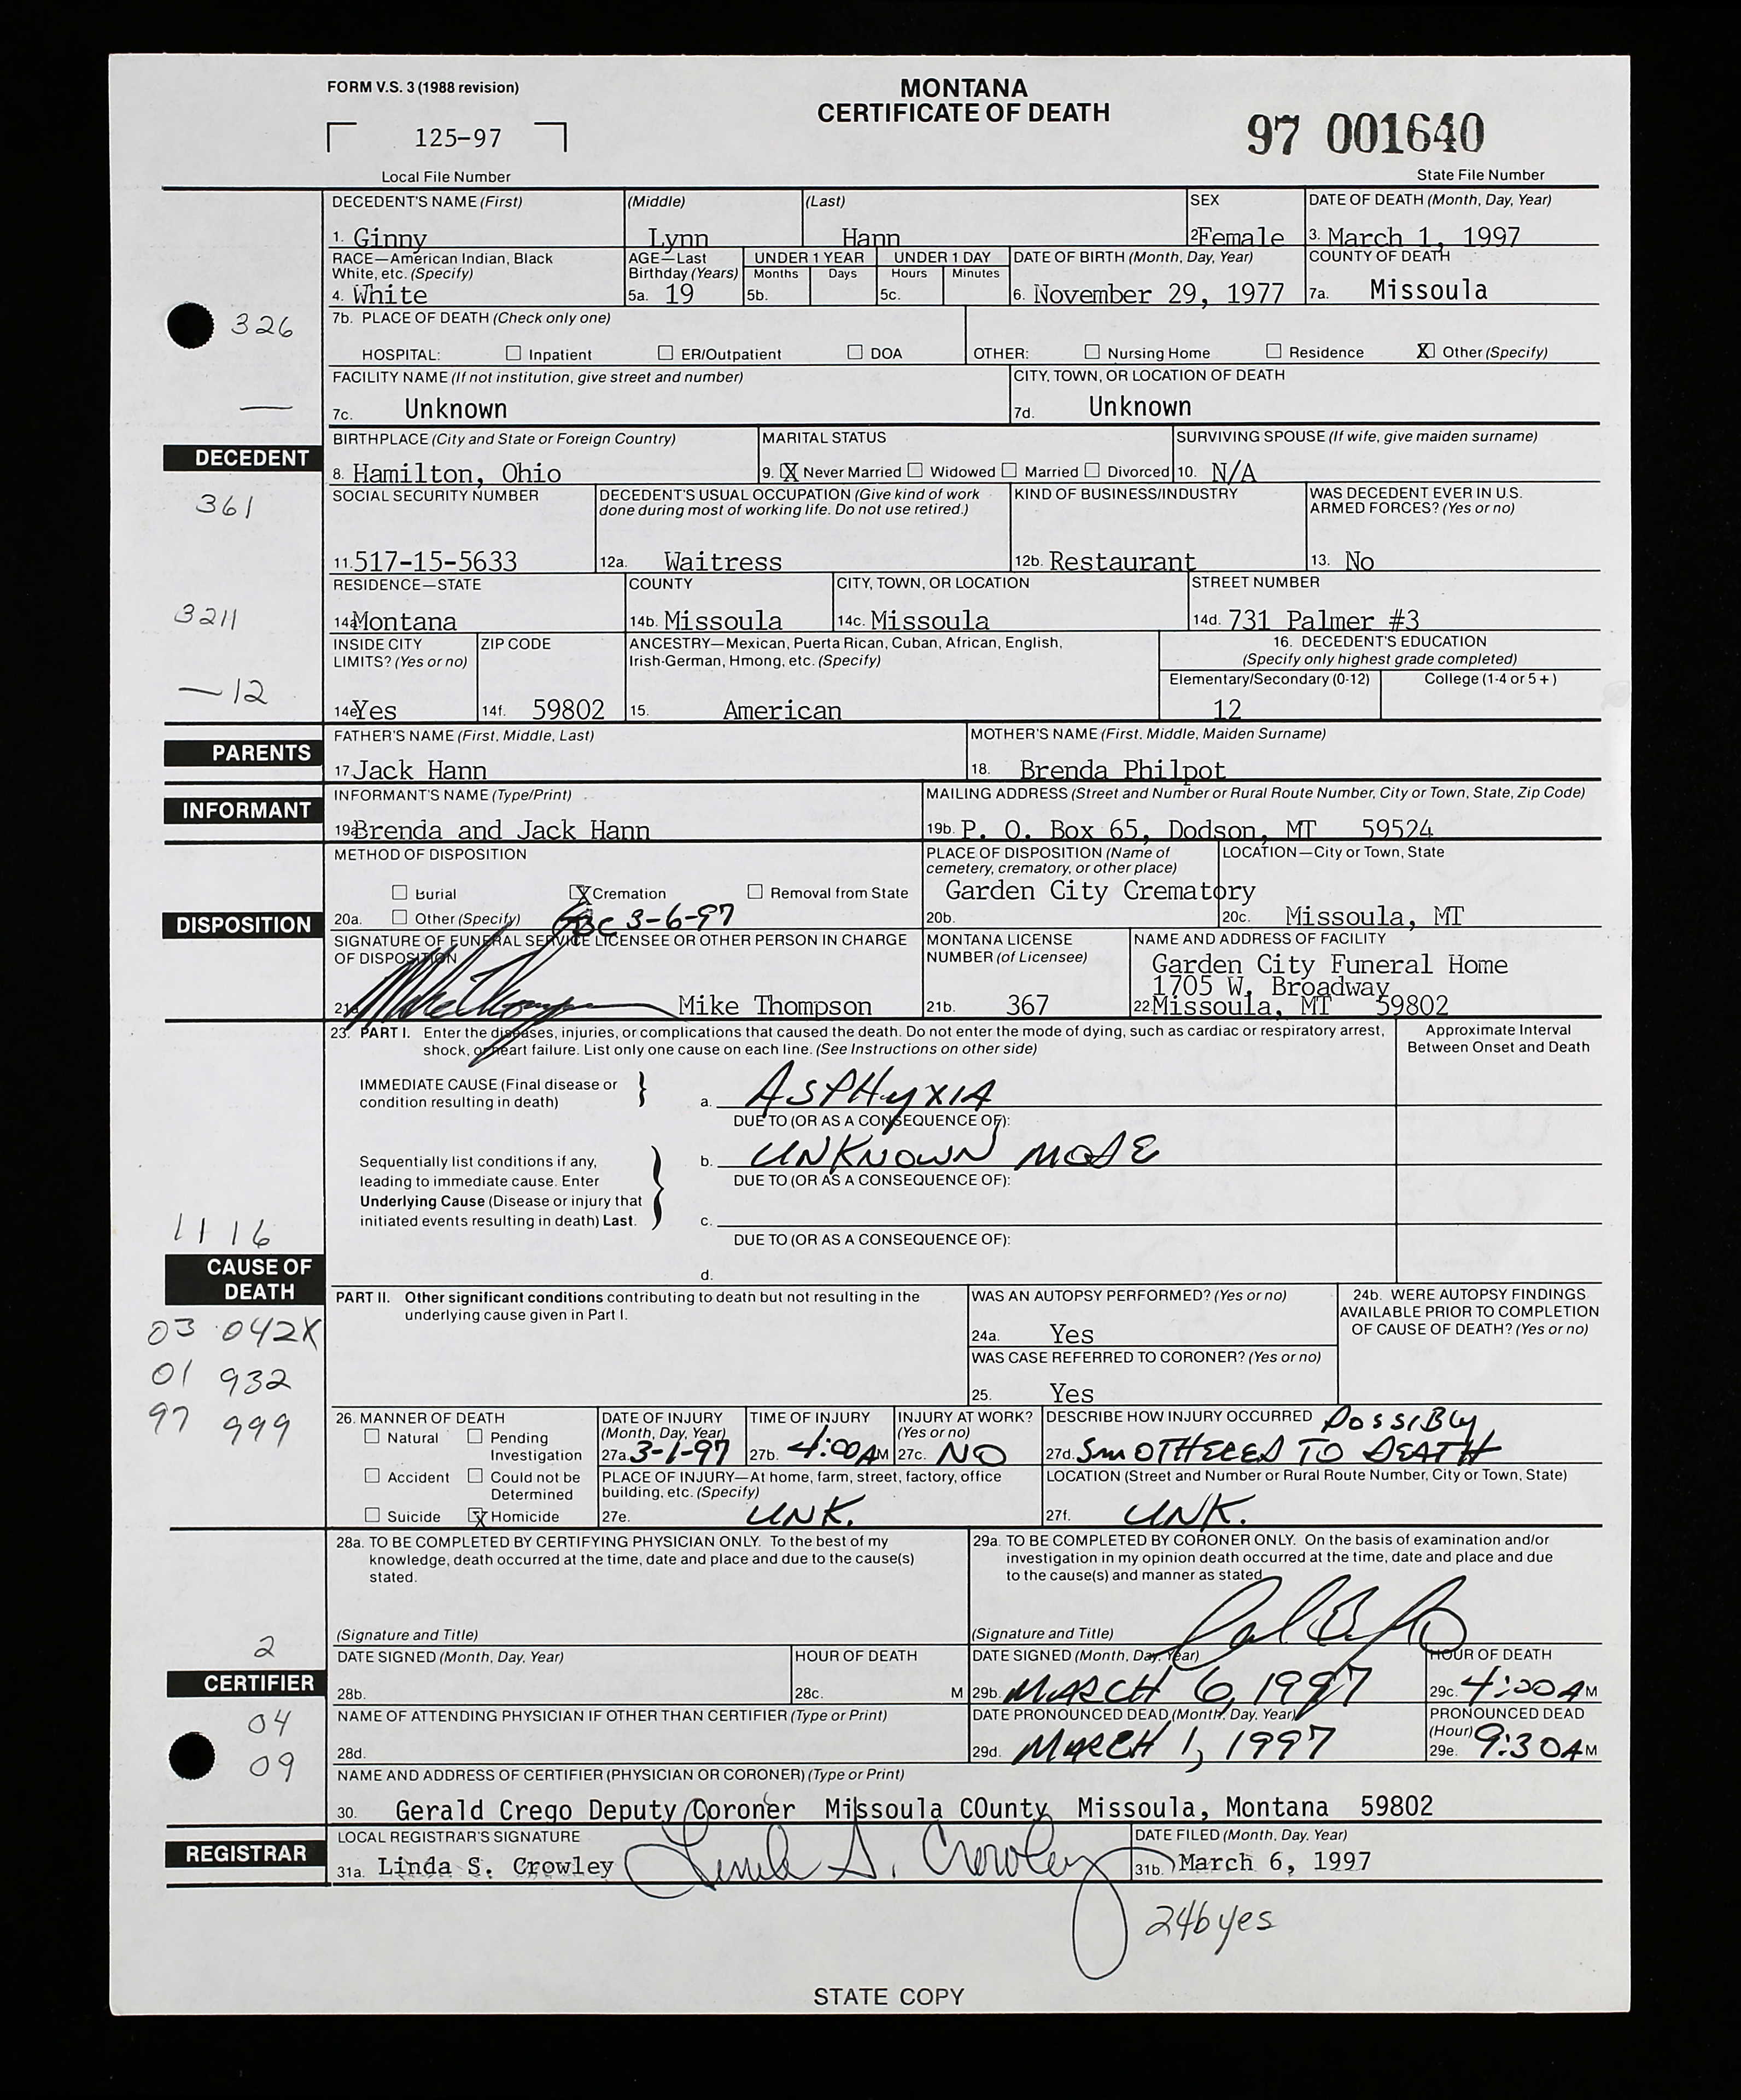 FORM V.S. 3 (1988 revision)
MONTANA
CERTIFICATE OF DEATH
125-97
Local File Number
97 001640
State File Number
DECEDENT'S NAME (First) (Middle) (Last) SEX DATE OF DEATH (Month, Day, Year)
1. Ginny Lynn Hann 2 Female 3. March 1, 1997
RACE—American Indian, Black White, etc. (Specify) AGE—Last Birthday (Years) UNDER 1 YEAR Months Days UNDER 1 DAY Hours Minutes DATE OF BIRTH (Month, Day, Year) COUNTY OF DEATH
4. White 5a. 19 5b. 5c. 6. November 29, 1977 7a. Missoula
326
7b. PLACE OF DEATH (Check only one)
HOSPITAL: Inpatient ER/Outpatient DOA OTHER: Nursing Home Residence X Other (Specify)
FACILITY NAME (If not institution, give street and number) CITY, TOWN, OR LOCATION OF DEATH
— 7c. Unknown 7d. Unknown
DECEDENT
BIRTHPLACE (City and State or Foreign Country) MARITAL STATUS SURVIVING SPOUSE (If wife, give maiden surname)
8. Hamilton, Ohio 9. X Never Married Widowed Married Divorced 10. N/A
361
SOCIAL SECURITY NUMBER DECEDENT'S USUAL OCCUPATION (Give kind of work done during most of working life. Do not use retired.) KIND OF BUSINESS/INDUSTRY WAS DECEDENT EVER IN U.S. ARMED FORCES? (Yes or no)
11. 517-15-5633 12a. Waitress 12b. Restaurant 13. No
RESIDENCE—STATE COUNTY CITY, TOWN, OR LOCATION STREET NUMBER
3211
14a Montana 14b. Missoula 14c. Missoula 14d. 731 Palmer #3
INSIDE CITY LIMITS? (Yes or no) ZIP CODE ANCESTRY—Mexican, Puerta Rican, Cuban, African, English, Irish-German, Hmong, etc. (Specify) 16. DECEDENT'S EDUCATION
(Specify only highest grade completed)
Elementary/Secondary (0-12) College (1-4 or 5+)
—12
14e Yes 14f. 59802 15. American 12
PARENTS
FATHER'S NAME (First, Middle, Last) MOTHER'S NAME (First, Middle, Maiden Surname)
17. Jack Hann 18. Brenda Philpot
INFORMANT
INFORMANT'S NAME (Type/Print) MAILING ADDRESS (Street and Number or Rural Route Number, City or Town, State, Zip Code)
19a Brenda and Jack Hann 19b. P. O. Box 65, Dodson, MT 59524
DISPOSITION
METHOD OF DISPOSITION PLACE OF DISPOSITION (Name of cemetery, crematory, or other place) LOCATION—City or Town, State
Burial X Cremation Removal from State Garden City Crematory
20a. Other (Specify) 3-6-97 20b. 20c. Missoula, MT
SIGNATURE OF FUNERAL SERVICE LICENSEE OR OTHER PERSON IN CHARGE OF DISPOSITION MONTANA LICENSE NUMBER (of Licensee) NAME AND ADDRESS OF FACILITY
Garden City Funeral Home
1705 W. Broadway
21a Mike Thompson Mike Thompson 21b. 367 22 Missoula, MT 59802
23. PART I. Enter the diseases, injuries, or complications that caused the death. Do not enter the mode of dying, such as cardiac or respiratory arrest, shock, or heart failure. List only one cause on each line. (See Instructions on other side)
Approximate Interval Between Onset and Death
IMMEDIATE CAUSE (Final disease or condition resulting in death)
a. ASPHYXIA
DUE TO (OR AS A CONSEQUENCE OF):
Sequentially list conditions if any, leading to immediate cause. Enter Underlying Cause (Disease or injury that initiated events resulting in death) Last.
b. UNKNOWN MODE
DUE TO (OR AS A CONSEQUENCE OF):
c.
DUE TO (OR AS A CONSEQUENCE OF):
d.
1116
CAUSE OF DEATH
03 042X
01 932
97 999
PART II. Other significant conditions contributing to death but not resulting in the underlying cause given in Part I.
WAS AN AUTOPSY PERFORMED? (Yes or no)
24a. Yes
24b. WERE AUTOPSY FINDINGS AVAILABLE PRIOR TO COMPLETION OF CAUSE OF DEATH? (Yes or no)
WAS CASE REFERRED TO CORONER? (Yes or no)
25. Yes
26. MANNER OF DEATH
Natural Pending Investigation
Accident Could not be Determined
Suicide X Homicide
DATE OF INJURY (Month, Day, Year) TIME OF INJURY INJURY AT WORK? (Yes or no) DESCRIBE HOW INJURY OCCURRED POSSIBLY
27a. 3-1-97 27b. 4:00 AM 27c. NO 27d. SMOTHERED TO DEATH
PLACE OF INJURY—At home, farm, street, factory, office building, etc. (Specify) LOCATION (Street and Number or Rural Route Number, City or Town, State)
27e. UNK. 27f. UNK.
28a. TO BE COMPLETED BY CERTIFYING PHYSICIAN ONLY. To the best of my knowledge, death occurred at the time, date and place and due to the cause(s) stated.
(Signature and Title)
29a. TO BE COMPLETED BY CORONER ONLY. On the basis of examination and/or investigation in my opinion death occurred at the time, date and place and due to the cause(s) and manner as stated
(Signature and Title)
2
CERTIFIER
04
09
DATE SIGNED (Month, Day, Year) HOUR OF DEATH DATE SIGNED (Month, Day, Year) HOUR OF DEATH
28b. 28c. M 29b. MARCH 6, 1997 29c. 4:00 AM
NAME OF ATTENDING PHYSICIAN IF OTHER THAN CERTIFIER (Type or Print) DATE PRONOUNCED DEAD (Month, Day, Year) PRONOUNCED DEAD (Hour)
28d. 29d. MARCH 1, 1997 29e. 9:30 AM
NAME AND ADDRESS OF CERTIFIER (PHYSICIAN OR CORONER) (Type or Print)
30. Gerald Crego Deputy Coroner Missoula COunty Missoula, Montana 59802
REGISTRAR
LOCAL REGISTRAR'S SIGNATURE DATE FILED (Month, Day, Year)
31a. Linda S. Crowley Linda S. Crowley 31b. March 6, 1997
24b yes
STATE COPY